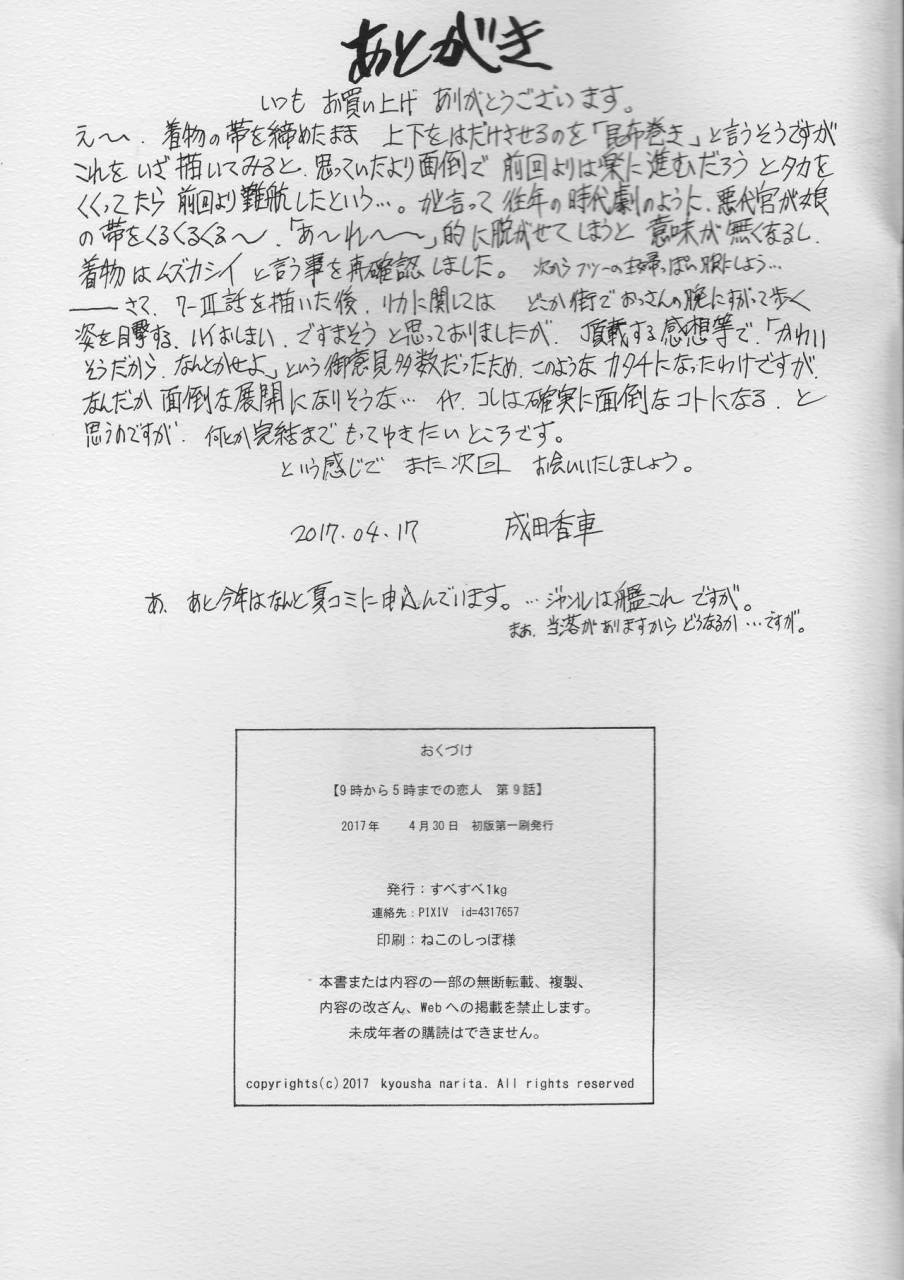 あとがき
いつも お買い上げ ありがとうございます。
え～、着物の帯を締めたまま 上下をはだけさせるのを「昆布巻き」と言うそうですが
これを いざ 描いてみると、思っていたより面倒で 前回よりは楽に進むだろう とタカを
くくってたら 前回より難航したという…。が言って 往年の時代劇のように、悪代官が娘
の帯をくるくるくる～、「あ～れ～～」的に脱がせてしまうと 意味が無くなるし、
着物はムズカシイ と言う事を再確認しました。 次からフツーの主婦っぽい服にしよう…
――さて、7-Ⅲ話を描いた後、リカに関しては どこか街でおっさんの腕にすがって歩く
姿を目撃する、ハイおしまい、ですまそう と思っておりましたが、頂載する感想等で、「かわい
そうだから、なんとかせよ」という御意見多数だったため、このような カタチになったわけですが、
なんだか 面倒な展開になりそうな… イヤ、コレは確実に面倒なコトになる、と
思うのですが、何とか完結まで もってゆきたい ところです。
という感じで また次回 お会いいたしましょう。
2017.04.17 成田香車
あ、あと今年はなんと夏コミに申込んでいます。…ジャンルは艦これ ですが。
まぁ、当落がありますから どうなるか…ですが。
おくづけ
【9時から5時までの恋人 第9話】
2017年 4月30日 初版第一刷発行
発行：すべすべ1kg
連絡先：PIXIV id=4317657
印刷：ねこのしっぽ様
本書または内容の一部の無断転載、複製、
内容の改ざん、Webへの掲載を禁止します。
未成年者の購読はできません。
copyrights(c)2017 kyousha narita. All rights reserved